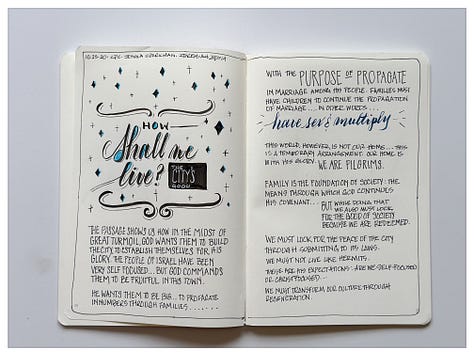 HOW
Shall we
live?
THE PASSAGE SHOWS US HOW IN THE MIDST OF
GREAT TURMOIL, GOD WANTS THEM TO BUILD
THE CITY TO ESTABLISH THEMSELVES FOR HIS
GLORY. THE PEOPLE OF ISRAEL HAVE BEEN
VERY SELF FOCUSED... BUT GOD COMMANDS
THEM TO BE FRUITFUL, IN THIS TOWN.
HE WANTS THEM TO BE BIG... TO PROPAGATE
IN NUMBERS THROUGH FAMILIES.......
WITH THE PURPOSE OF PROPAGATE
IN MARRIAGE AMONG HIS PEOPLE. FAMILIES MUST
HAVE CHILDREN TO CONTINUE THE PROPAGATION
OF MARRIAGE.... IN OTHER WORDS....
have sex & multiply
THIS WORLD, HOWEVER, IS NOT OUR HOME... THIS
IS A TEMPORARY ARRANGEMENT. OUR HOME IS
WITH HIS GLORY. WE ARE PILGRIMS.
FAMILY IS THE FOUNDATION OF SOCIETY: THE
MEANS THROUGH WHICH GOD CONTINUES
HIS COVENANT... BUT WHILE DOING THAT
WE ALSO MUST LOOK
FOR THE GOOD OF SOCIETY
BECAUSE WE ARE REDEEMED.
WE MUST LOOK FOR THE PEACE OF THE CITY
THROUGH SUBMITTING TO ITS LAWS.
WE MUST NOT LIVE LIKE HERMITS.
THESE ARE HIS EXPECTATIONS: ARE WE SELF-FOCUSED
OR CHRIST-FOCUSED...
WE MUST TRANSFORM OUR CULTURE THROUGH
REGENERATION.